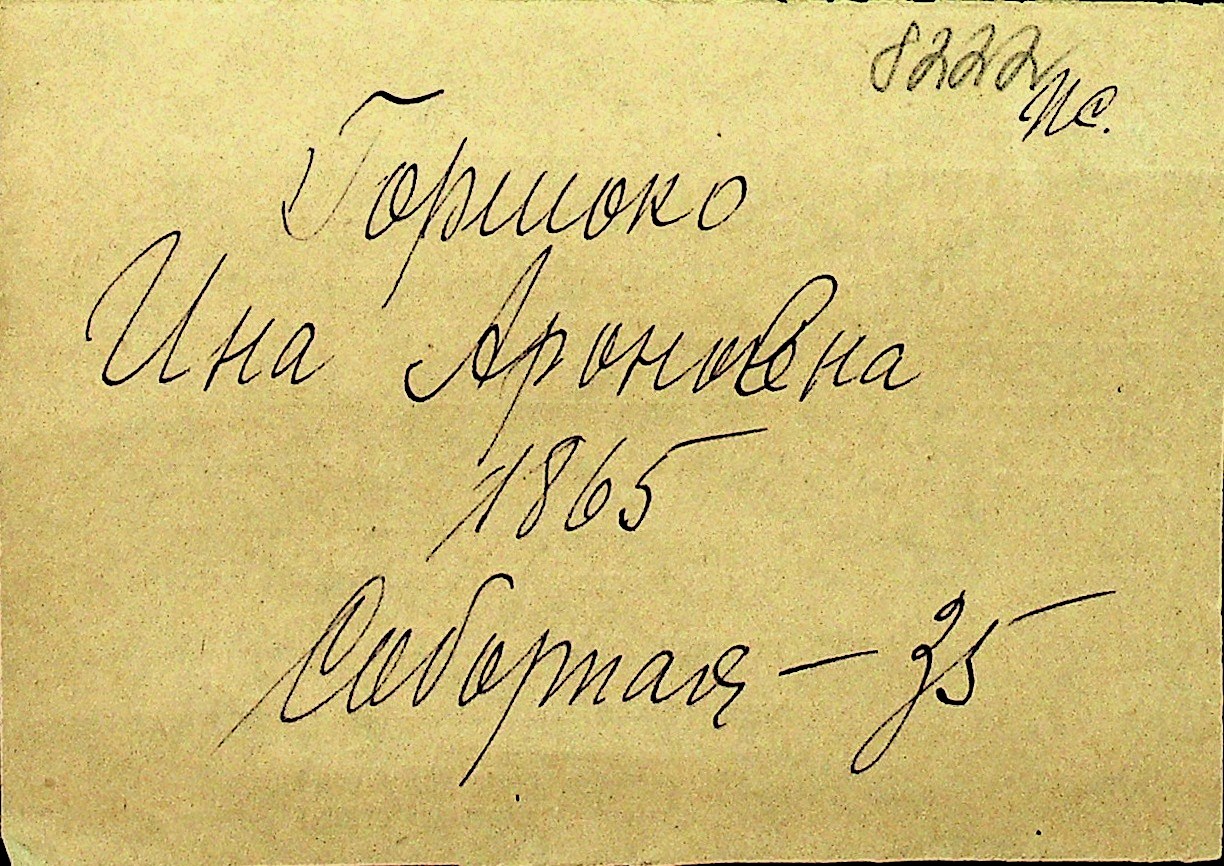 8222
ис.
Горшоко
Ина Ароновна
1865
Соборная - 35